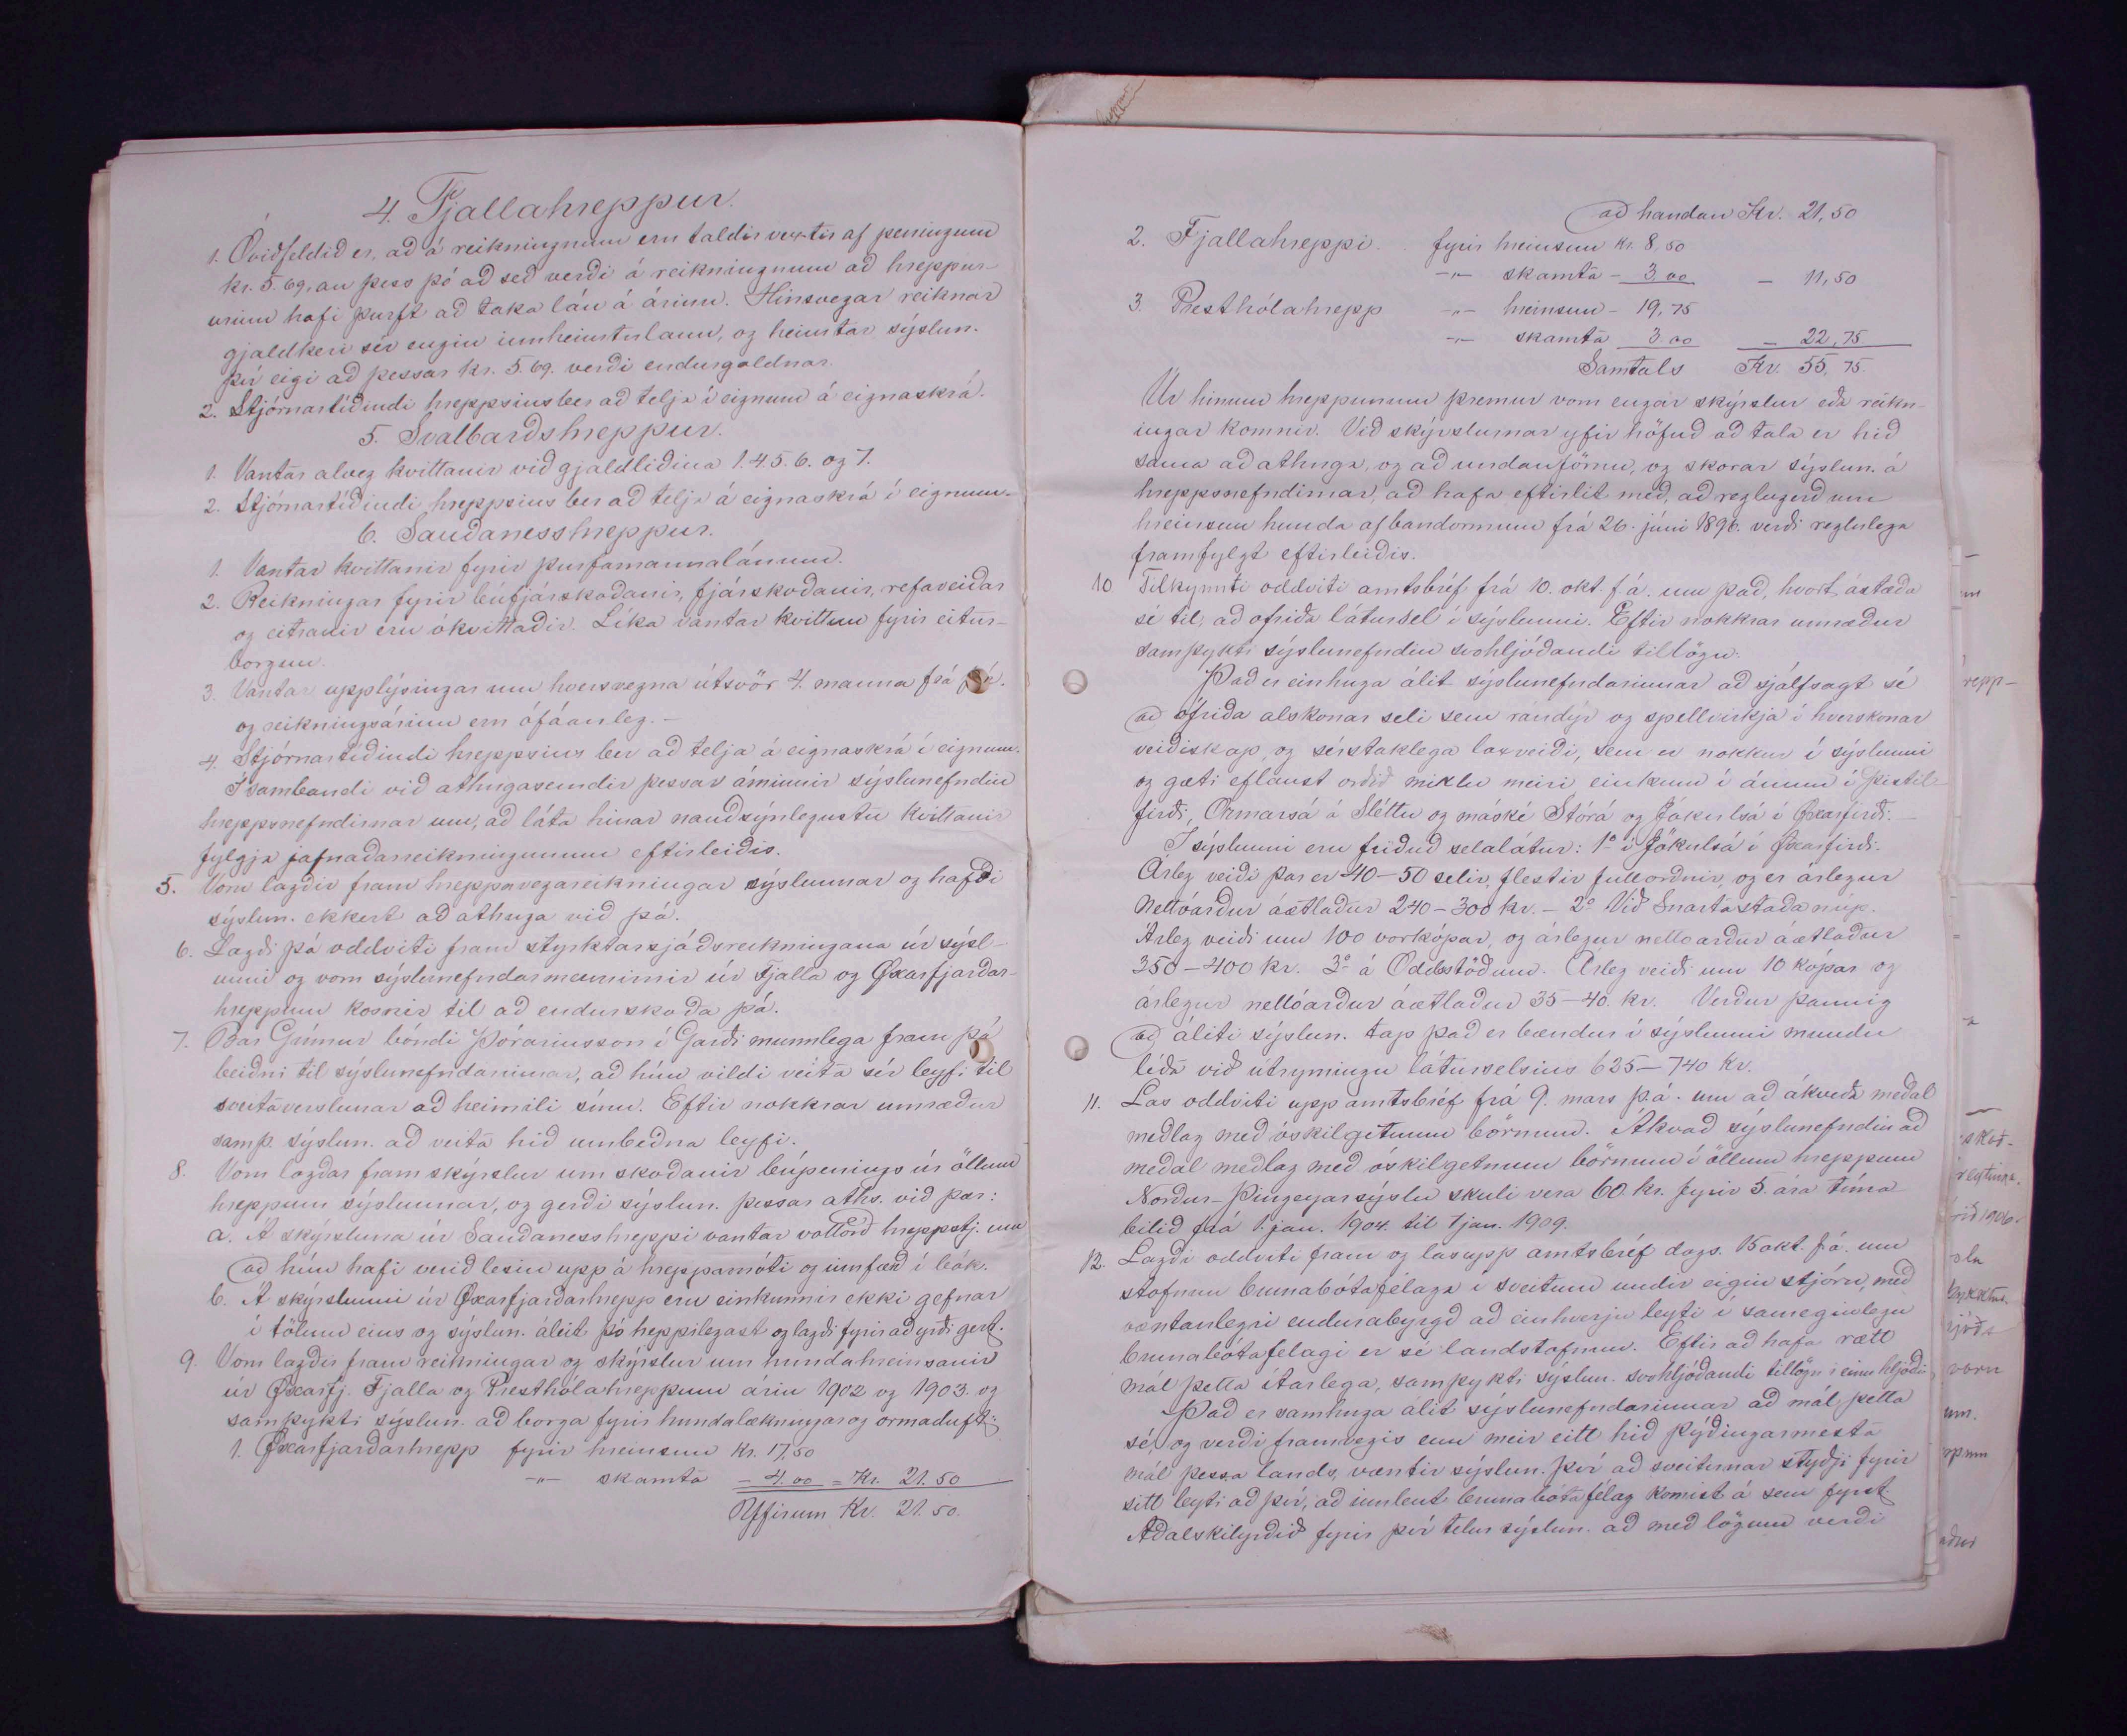 4. Fjallahreppur.
1. Óviðfeldið er, að á reikningnum eru taldir vextir af peningum
kr. 5.69, án þess þó að séð verði á reikningnum að hreppur-
urinn hafi þurft að taka lán á árinu. Hinsvegar reiknar
gjaldkeri sér engin innheimtulaun, og heimtar sýslun.
því eigi að þessar kr. 5.69. verði endurgoldnar.
2. Stjórnartíðindi hreppsins ber að telja í eignum á eignaskrá.
5. Svalbarðshreppur.
1. Vantar alveg kvittanir við gjaldliðina 1.4.5.6. og 7.
2. Stjórnartíðindi hreppsins ber að telja á eignaskrá í eignum.
6. Sauðanesshreppur.
1. Vantar kvittanir fyrir þurfamannalánum.
2. Reikningar fyrir búfjárskoðanir, fjárskoðanir, refaveiðar
og eitranir eru ókvittaðir. Líka vantar kvittun fyrir eitur-
borgun.
3. Vantar upplýsingar um hversvegna útsvör 4. manna frá f.á.
og reikningsárinu eru ófáanleg. –
4. Stjórnartíðindi hreppsins ber að telja á eignaskrá í eignum.
Í sambandi við athugasemdir þessar áminnir sýslunefndin
hreppsnefndirnar um, að láta hinar nauðsýnlegustu kvittanir
fylgja jafnaðarreikningunum eftirleiðis.
5. Voru lagðir fram hreppavegareikningar sýslunnar og hafði
sýslun. ekkert að athuga við þá.
6. Lagði þá oddviti fram styrktarsjóðsreikningana úr sýsl-
unni og voru sýslunefndarmennirnir úr Fjalla og Øxarfjarðar-
hreppum kosnir til að endurskoða þá.
7. Bar Grímur bóndi Þórarinsson í Garði munnlega fram þá
beiðni til sýslunefndarinnar, að hún vildi veita sér leyfi til
sveitaverslunar að heimili sínu. Eftir nokkrar umræður
samþ. sýslun. að veita hið umbeðna leyfi.
8. Voru lagðar fram skýrslur um skoðanir búpenings úr öllum
hreppum sýslunnar, og gerði sýslun. þessar aths. við þær:
a. Á skýrsluna úr Sauðanesshreppi vantar vottorð hreppstj. um
að hún hafi verið lesin upp á hreppamóti og innfærð í bók.
b. Á skýrslunni úr Øxarfjarðarhrepp eru einkunnir ekki gefnar
í tölum eins og sýslun. áleit þó heppilegast og lagði fyrir að yrði gert.
9. Voru lagðir fram reikningar og skýrslur um hundahreinsanir
úr Øxarfj. Fjalla og Presthólahreppum árin 1902 og 1903. og
samþykti sýslun. að borga fyrir hundalækningar og ormaduft:
1. Øxarfjarðarhrepp fyrir hreinsun kr. 17,50
–"– skamta – 4.00 = Kr. 21.50
Yffirum Kr. 21.50.
að handan Kr. 21,50
2. Fjallahreppi . . fyrir hreinsun kr. 8,50
–"– skamta – 3.00 – 11,50
3. Presthólahrepp –"– hreinsun – 19,75
–"– skamta 3.00 – 22,75
Samtals Kr. 55,75.
Úr hinum hreppunum þremur voru engar skýrslur eða reikn-
ingar komnir. Við skýrslurnar yfir höfuð að tala er hið
sama að athuga, og að undanförnu, og skorar sýslun. á
hreppsnefndirnar, að hafa eftirlit með, að reglugerð um
hreinsun hunda af bandormum frá 26. júni 1896. verði reglulega
framfylgt eftirleiðis.
10 Tilkynnti oddviti amtsbréf frá 10. okt. f.á. um það, hvort ástæða
sé til, að ófriða láturssel í sýslunni. Eftir nokkrar umræður
samþykti sýslunefndin svohljóðandi tillögu:
Það er einhuga álit sýslunefndarinnar að sjálfsagt sé
að ófriða alskonar seli sem rándýr og spellvirkja í hverskonar
veiðiskap, og sérstaklega laxveiði, sem er nokkur í sýslunni
og gæti eflaust orðið miklu meiri einkum í ánum í Þistil-
firði, Ormarsá á Sléttu og máské Stórá og Jökulsá í Øxarfirði. –
Í sýslunni eru friðuð selalátur: 1º í Jökulsá í Øxarfirði.
Árleg veiði þar er 40–50 selir, flestir fullorðnir, og er árlegur
nettóarður áætlaður 240–300 kr. – 2º Við Snartarstaðanúp.
Árleg veiði um 100 vorkópar, og árlegur nettoarður áætlaður
350–400 kr. 3º á Oddsstöðum. Árleg veiði um 10 kópar og
árlegur nettóarður áætlaður 35–40. kr. Verður þannig
að áliti sýslun. tap það er bændur í sýslunni mundu
líða við útrýmingu láturselsins 625–740 kr.
11. Las oddviti upp amtsbréf frá 9. mars þ.á. um að ákveða meðal
meðlag með óskilgetnum börnum. Ákvað sýslunefndin að
meðal meðlag með óskilgetnum börnum í öllum hreppum
Norður-Þingeyarsýslu skuli vera 60. kr. fyrir 5. ára tíma-
bilið frá 1. jan. 1904. til 1 jan. 1909.
12. Lagði oddviti fram og las upp amtsbréf dags. 15 okt. f.á. um
stofnun brunabótafélaga í sveitum undir eigin stjórn, með
væntanlegri endurábyrgð að einhverju leyti í sameginlegu
brunabótafélagi er sé landstofnun. Eftir að hafa rætt
mál þetta ítarlega, samþykti sýslun. svohljóðandi tillögu í einu hljóði:
Það er samhuga álit sýslunefndarinnar að mál þetta
sé, og verði framvegis enn meir eitt hið þýðingarmesta
mál þessa lands, væntir sýslun. því að sveitirnar styðji fyrir
sitt leyti að því, að innlent brunabótafélag komist á sem fyrst.
Aðalskilyrðið fyrir því telur sýslun. að með lögum verði